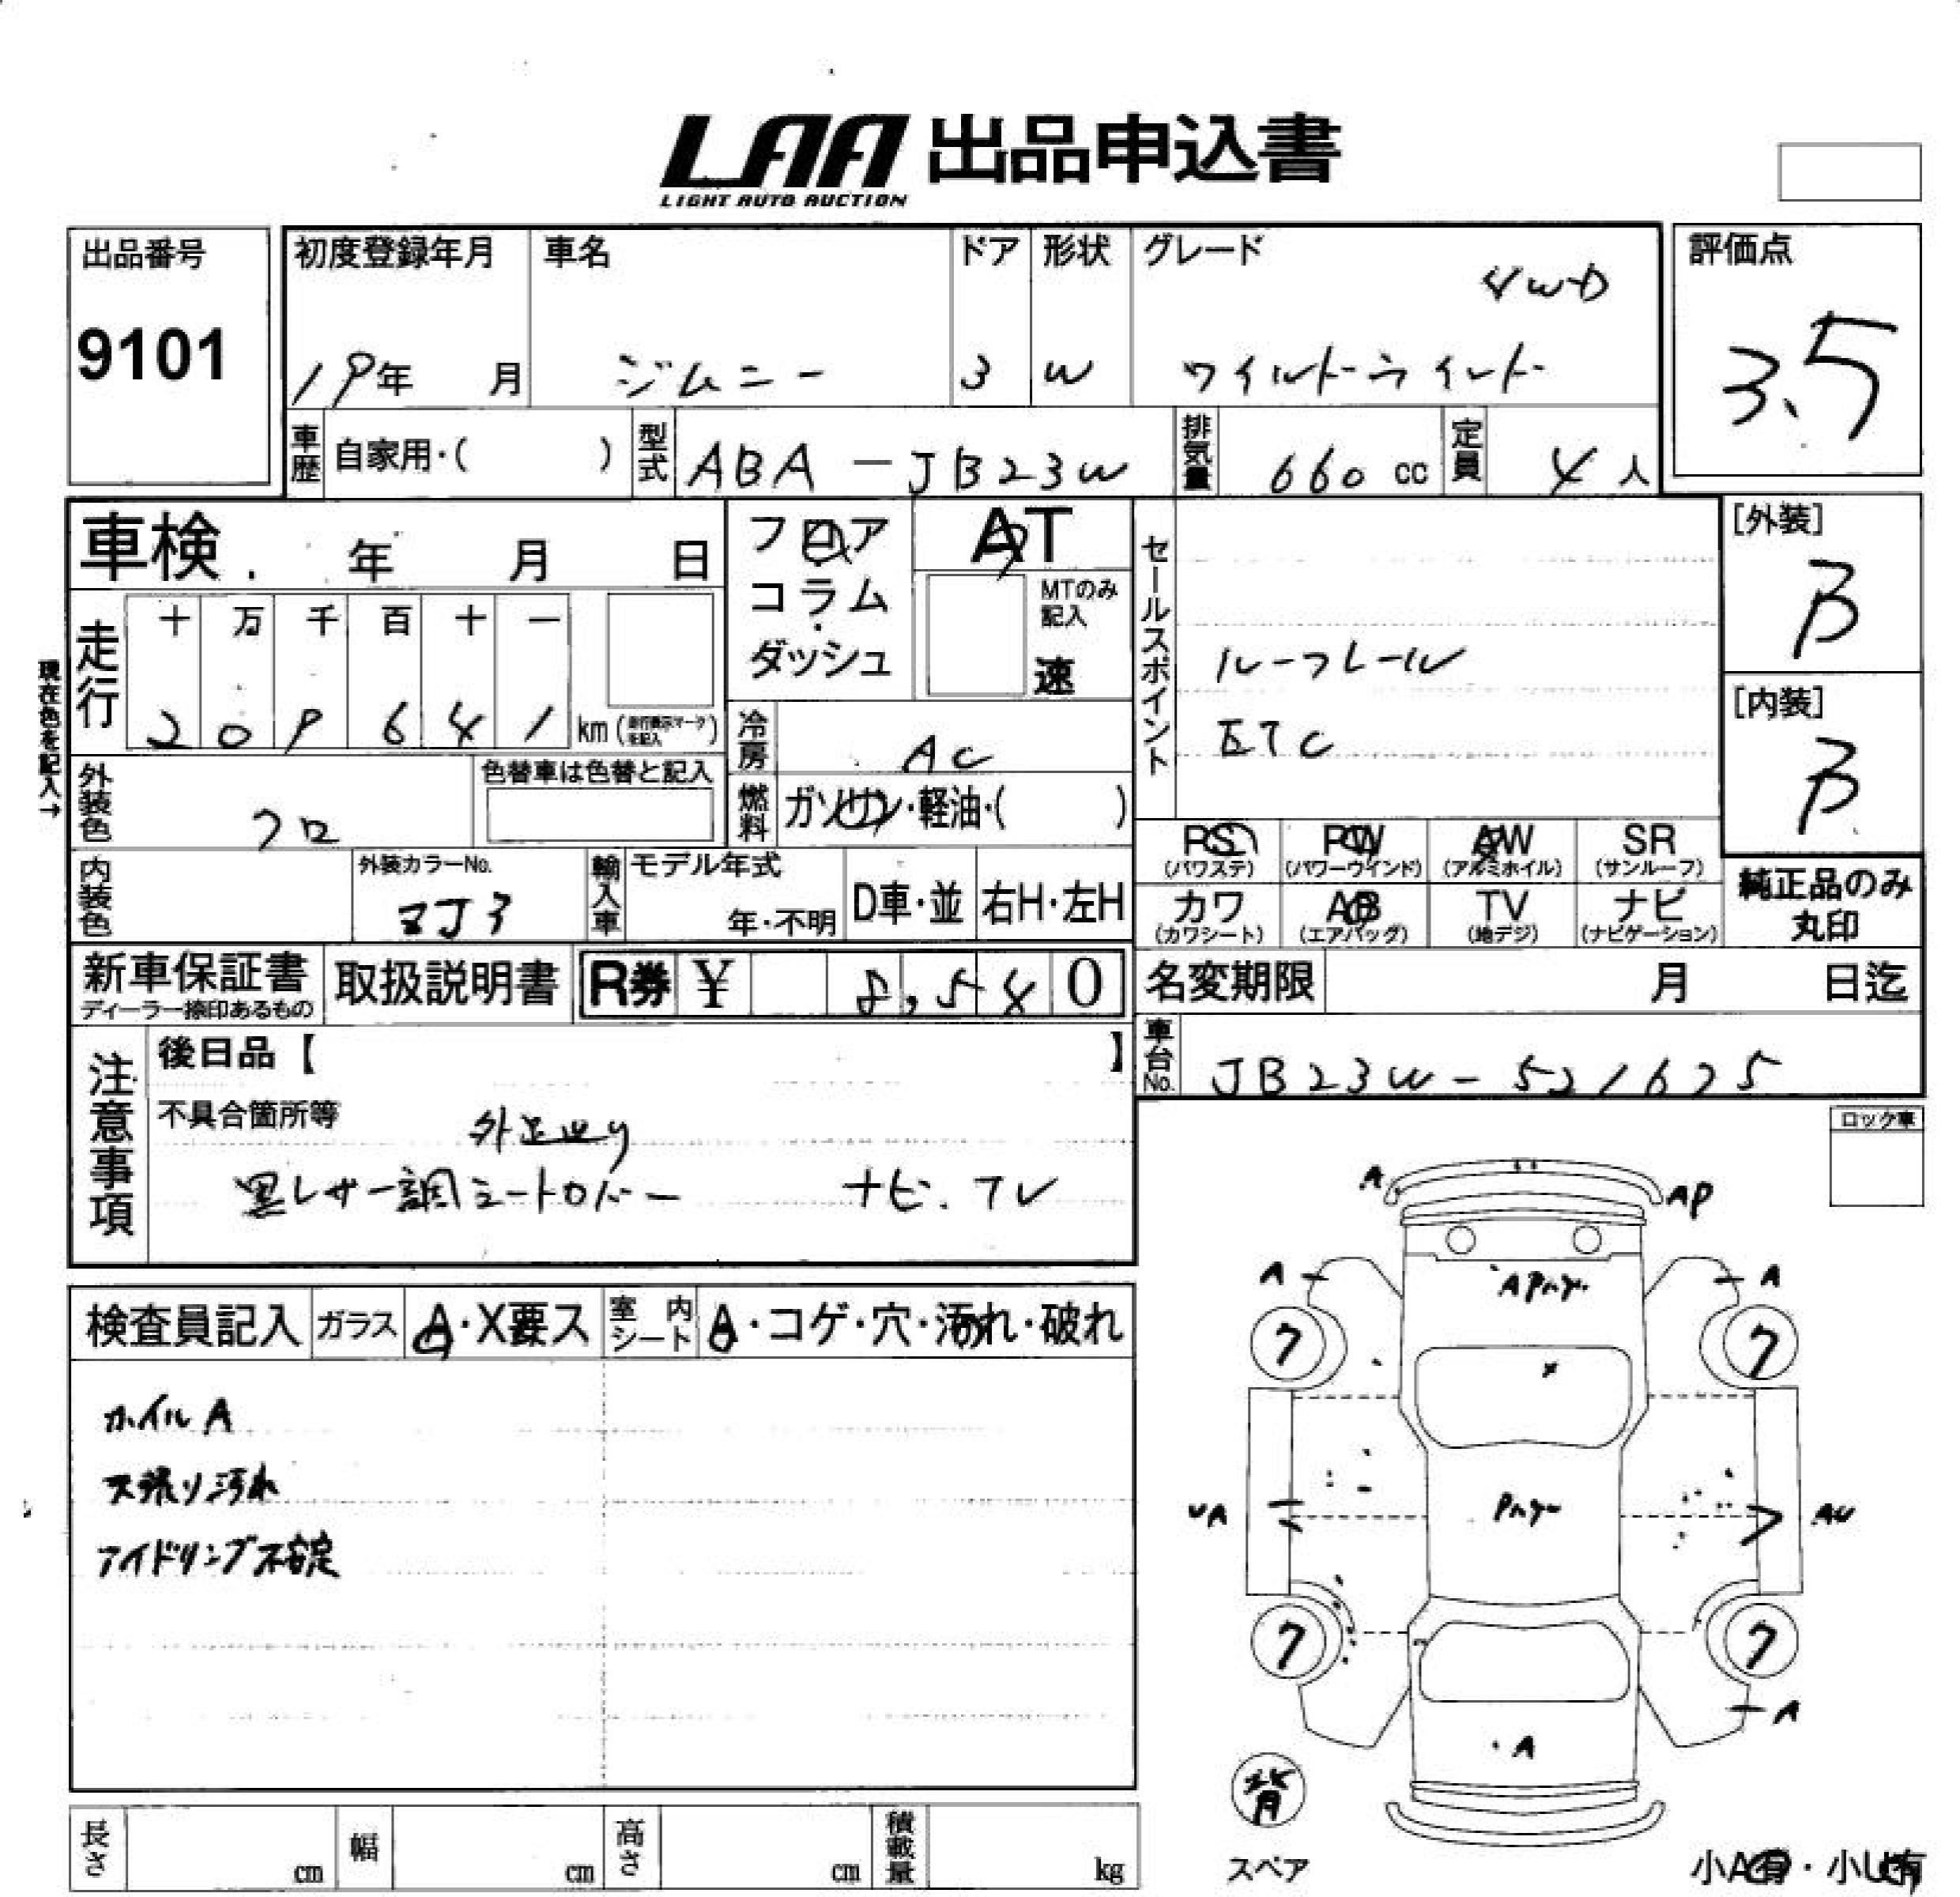 LAA 出品申込書
LIGHT AUTO AUCTION
出品番号
9101
初度登録年月
19年 月
車名
ジムニー
ドア
3
形状
W
グレード
4WD
ワイルドウインド
評価点
3.5
車歴 自家用・( )
型式 ABA-JB23W
排気量 660 cc
定員 4 人
車検 年 月 日
フロア
コラム
ダッシュ
AT
MTのみ
記入
速
セールスポイント
ルーフレール
ETC
[外装]
B
[内装]
B
現在色を記入→
走行
十 万 千 百 十 一
2 0 9 6 4 1 km (走行表示マークを記入)
冷房 AC
外装色 クロ
色替車は色替と記入
燃料 ガソリン・軽油・( )
PS (パワステ)
PW (パワーウインド)
AW (アルミホイル)
SR (サンルーフ)
カワ (カワシート)
AB (エアバッグ)
TV (地デジ)
ナビ (ナビゲーション)
純正品のみ
丸印
内装色
外装カラーNo.
ZJ3
輸入車
モデル年式
年・不明
D車・並
右H・左H
新車保証書
ディーラー捺印あるもの
取扱説明書
R券 ¥ 8,540
名変期限 月 日迄
車台No. JB23W-521675
注意事項
後日品【 】
不具合箇所等
黒レザー調シートカバー ナビ.TV
ロック車
検査員記入
ガラス A・X要ス
室内シート A・コゲ・穴・汚れ・破れ
ホイルA
天張り汚れ
アイドリング不安定
A
AP
A
A
7
7
UA
AU
7
7
A
A
背
スペア
小A有・小U有
長さ cm
幅 cm
高さ cm
積載量 kg